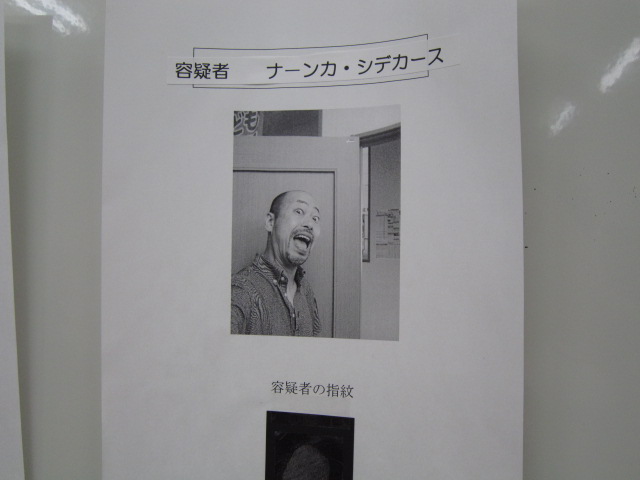 容疑者　ナーンカ・シデカース
容疑者の指紋